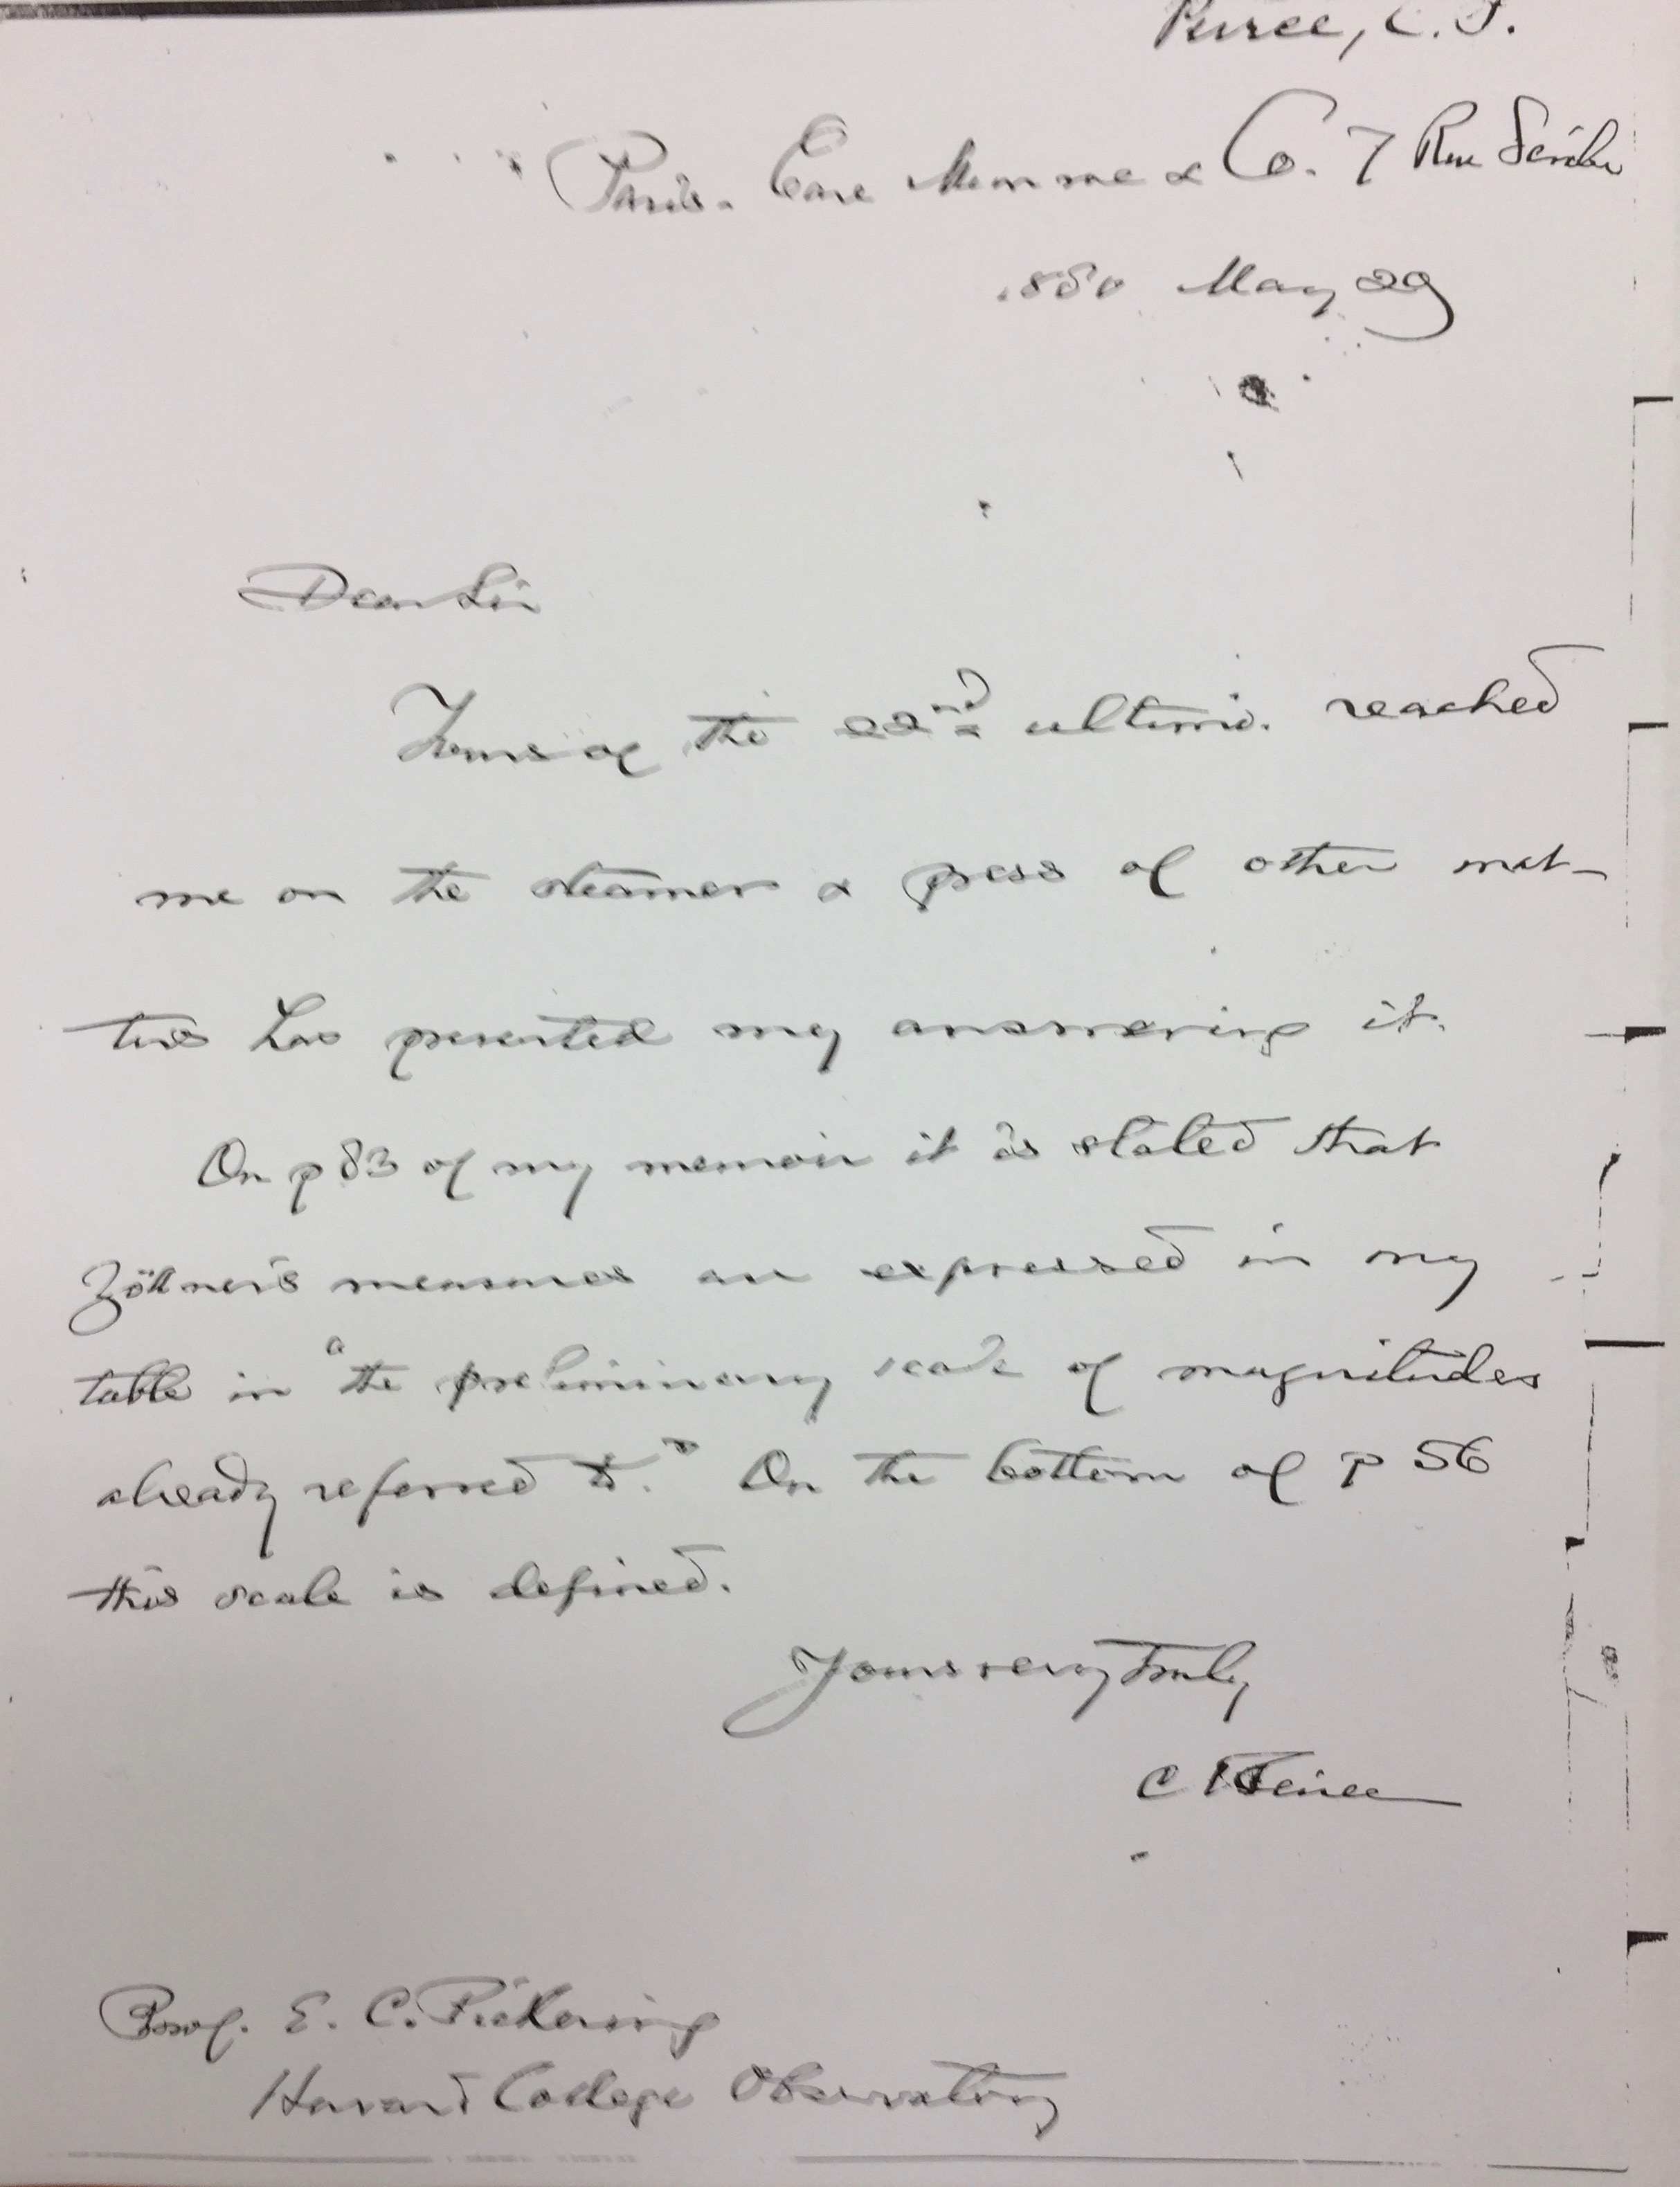 Peirce, C. S.
Paris. Care Munroe & Co. 7 Rue Scribe
1880 May 29
Dear Sir
Yours of the 22nd ultimo. reached
me on the steamer & press of other mat-
ters has prevented my answering it.
On p 83 of my memoir it is stated that
Zöllner's measures are expressed in my
table in "the preliminary scale of magnitudes
already referred to." On the bottom of p 56
this scale is defined.
Yours very truly
C S Peirce
Prof. E. C. Pickering
Harvard College Observatory